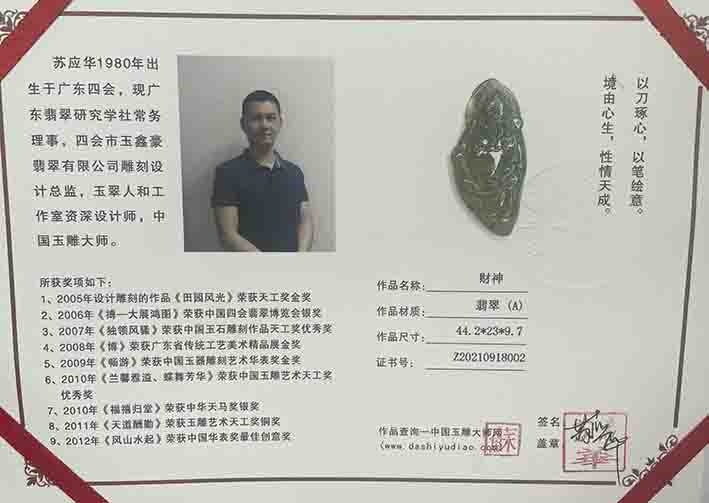 苏应华1980年出
生于广东四会，现广
东翡翠研究学社常务
理事，四会市玉鑫豪
翡翠有限公司雕刻设
计总监，玉翠人和工
作室资深设计师，中
国玉雕大师。
以刀琢心，以笔绘意。
境由心生，性情天成。
所获奖项如下：
1、2005年设计雕刻的作品《田园风光》荣获天工奖金奖
2、2006年《搏一大展鸿图》荣获中国四会翡翠博览会银奖
3、2007年《独领风骚》荣获中国玉石雕刻作品天工奖优秀奖
4、2008年《博》荣获广东省传统工艺美术精品展金奖
5、2009年《畅游》荣获中国玉器雕刻艺术华表奖金奖
6、2010年《兰馨雅溢、蝶舞芳华》荣获中国玉雕艺术天工奖
优秀奖
7、2010年《福禧归堂》荣获中华天马奖银奖
8、2011年《天道酬勤》荣获玉雕艺术天工奖铜奖
9、2012年《风山水起》荣获中国华表奖最佳创意奖
作品名称： 财神
作品材质： 翡翠（A）
作品尺寸： 44.2*23*9.7
证书号： Z20210918002
作品查询一中国玉雕大师网
（www.dashiyudiao.com）
签名
盖章